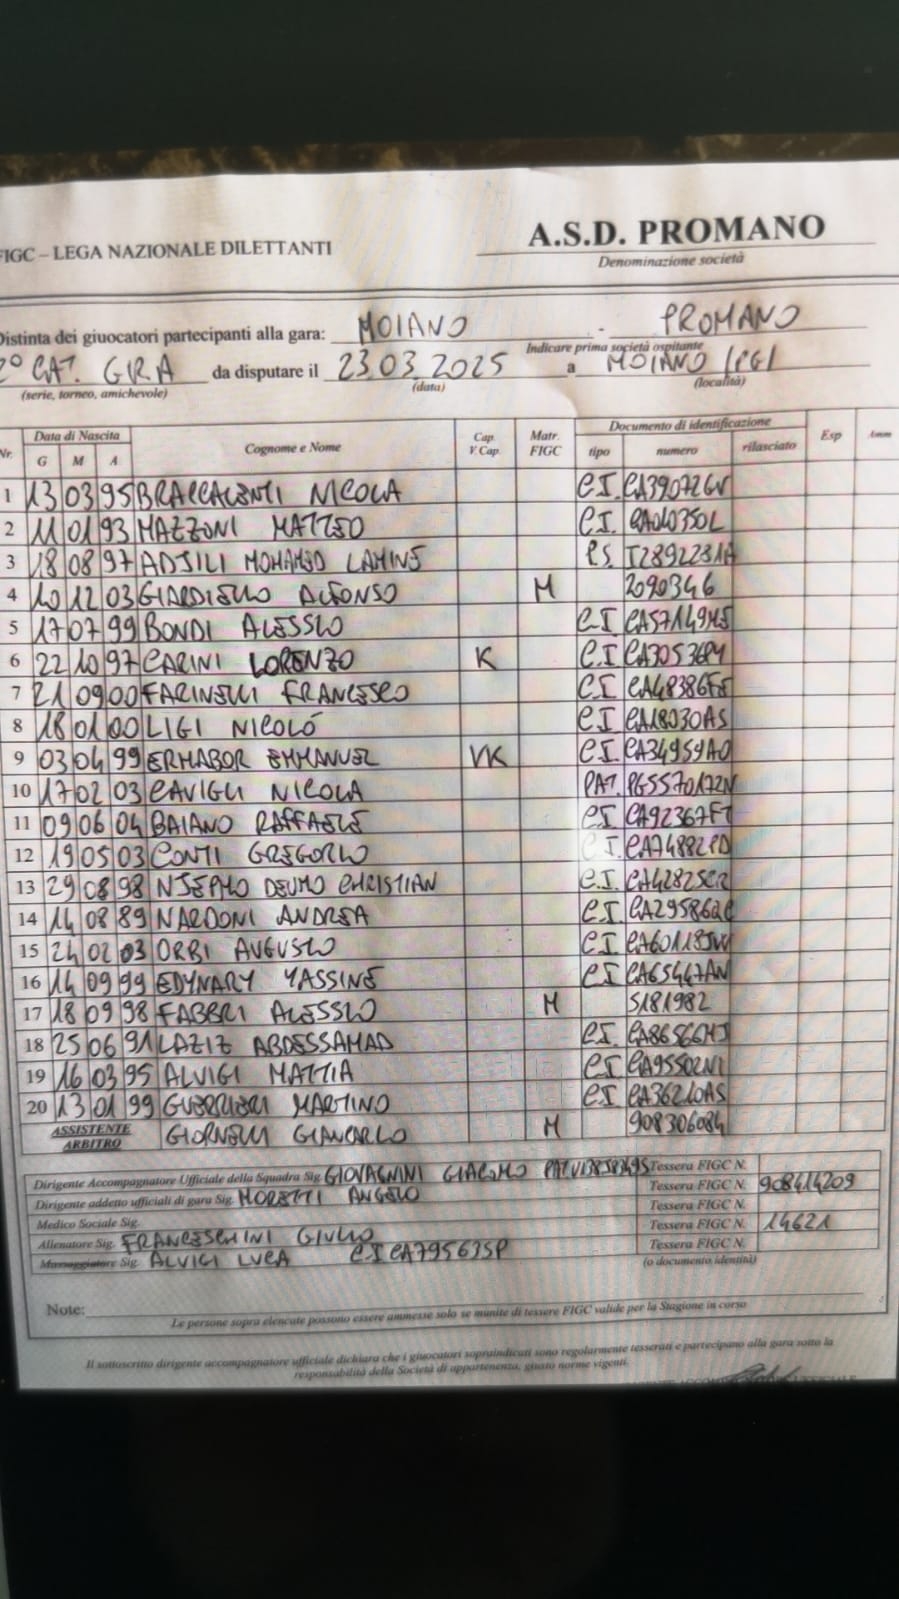 FIGC – LEGA NAZIONALE DILETTANTI
A.S.D. PROMANO
Denominazione società
Distinta dei giuocatori partecipanti alla gara: MOIANO - PROMANO
Indicare prima società ospitante
2° CAT. GIR A da disputare il 23.03.2025 a MOIANO (PG)
(serie, torneo, amichevole) (data) (località)
Nr. Data di Nascita G M A Cognome e Nome Cap. V.Cap. Matr. FIGC Documento di identificazione tipo numero rilasciato Esp Amm
1 13 03 95 BRACCALENTI NICOLA C.I. CA39072GV
2 11 01 93 MAZZONI MATTEO C.I. CA04035OL
3 18 08 97 ADJILI MOHAMED LAMINE PS. 12892231A
4 10 12 03 GIARDIELLO ALFONSO M 2090346
5 17 07 99 BONDI ALESSIO C.I. CA57149ME
6 22 10 97 CARINI LORENZO K C.I. CA30536PY
7 21 09 00 FARINELLI FRANCESCO C.I. CA48386FE
8 18 01 00 LIGI NICOLÓ C.I. CA18030AS
9 03 04 99 ERHABOR EMMANUEL VK C.I. CA34959AO
10 17 02 03 CAVIGLI NICOLA PAT. PG5570172N
11 09 06 04 BAIANO RAFFAELE C.I. CA92367FT
12 19 05 03 CONTI GREGORIO C.I. CA74882PD
13 29 08 98 NJEPMO DEUMO CHRISTIAN C.I. CA42825CR
14 14 08 89 NARDONI ANDREA C.I.
15 24 02 03 ORBI AUGUSTO C.I. CA60118JW
16 14 09 99 EDYNARY YASSINE C.I. CA65447AN
17 18 09 98 FABBRI ALESSIO M 5181982
18 25 06 91 LAZIZ ABDESSAMAD C.I. CA86566MJ
19 16 03 95 ALVIGI MATTIA C.I. CA95502NI
20 13 01 99 GUERRIERI MARTINO C.I. CA36210AS
ASSISTENTE ARBITRO GIORNELLI GIANCARLO M 908306084
Dirigente Accompagnatore Ufficiale della Squadra Sig. GIOVAGNINI GIACOMO PAT. Tessera FIGC N.
Dirigente addetto ufficiali di gara Sig. MORETTI ANGELO Tessera FIGC N. 908414209
Medico Sociale Sig. Tessera FIGC N.
Allenatore Sig. FRANCESCHINI GIULIO Tessera FIGC N. 14621
Massaggiatore Sig. ALVIGI LUCA C.I. CA79563SP Tessera FIGC N.
(o documento identità)
Note:
Le persone sopra elencate possono essere ammesse solo se munite di tessere FIGC valide per la Stagione in corso
Il sottoscritto dirigente accompagnatore ufficiale dichiara che i giuocatori sopraindicati sono regolarmente tesserati e partecipano alla gara sotto la
responsabilità della Società di appartenenza, giusto norme vigenti.